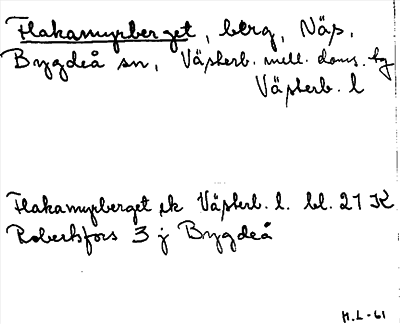 Flakamyrberget, berg, Näs,
Bygdeå sn, Västerb. mell. doms. by
Västerb. l
Flakamyrberget ek Västerb. l. bl. 27 K
Robertsfors 3 j Bygdeå
H.L-61